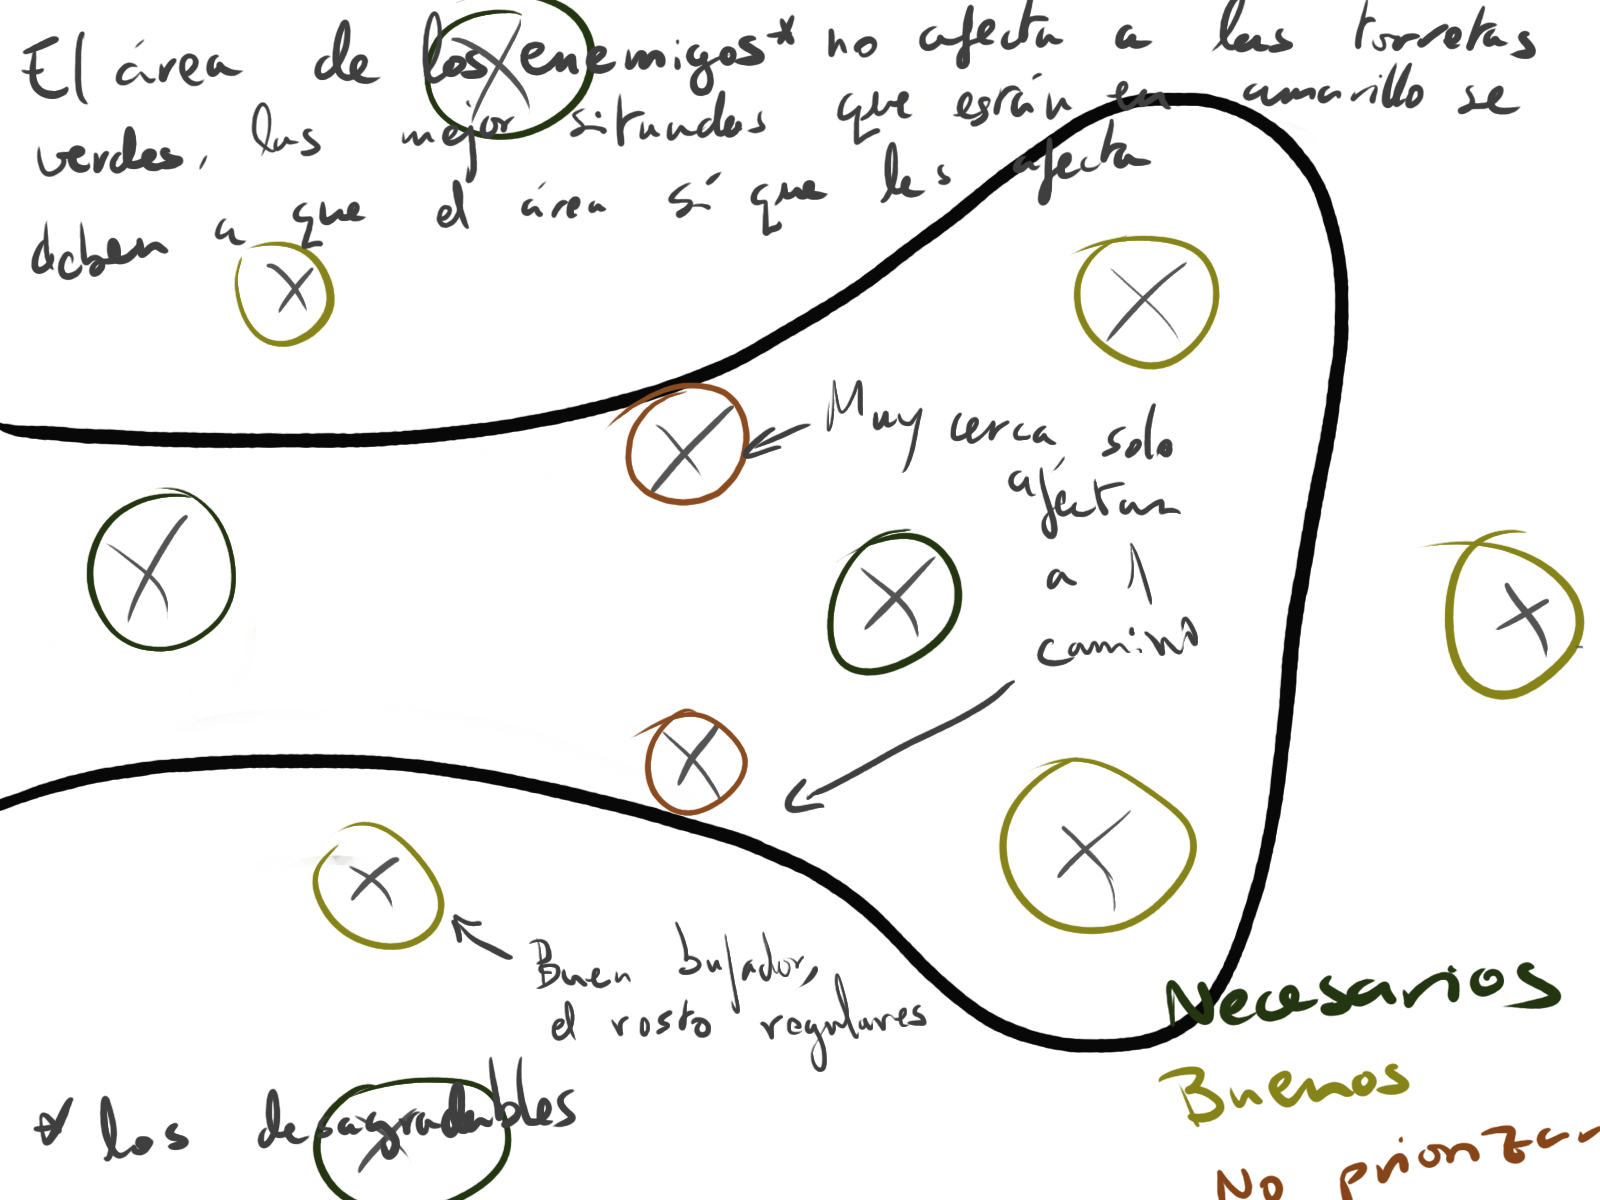 El área de los enemigos* no afecta a las torretas
verdes, las mejor situadas que están en amarillo se
deben a que el área sí que les afecta
Muy cerca solo
afectan
a 1
camino
Buen bufador,
el rosto regulares
* los desagradables
Necesarios
Buenos
No priorizar